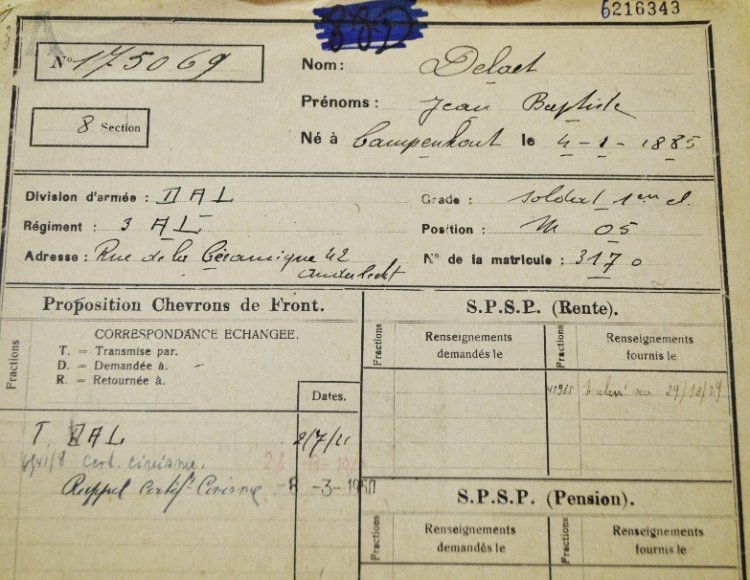 6216343
N° 175069
8 Section
Nom: Delaet
Prénoms: Jean Baptiste
Né à Campenhout le 4-1-1885
Division d'armée: DAL
Régiment: 3 AL
Adresse: Rue de la Céramique 42
Anderlecht
Grade: soldat 1er cl.
Position: M 05
N° de la matricule: 3170
Proposition Chevrons de Front.
Fractions
CORRESPONDANCE ECHANGEE.
T. = Transmise par.
D. = Demandée à.
R. = Retournée à.
Dates.
T. DAL
2/7/21
Cert. Civisme.
Rappel Certif. Civisme - 8-3-1950
S.P.S.P. (Rente).
Fractions
Renseignements
demandés le
Fractions
Renseignements
fournis le
29/10/29
S.P.S.P. (Pension).
Fractions
Renseignements
demandés le
Fractions
Renseignements
fournis le